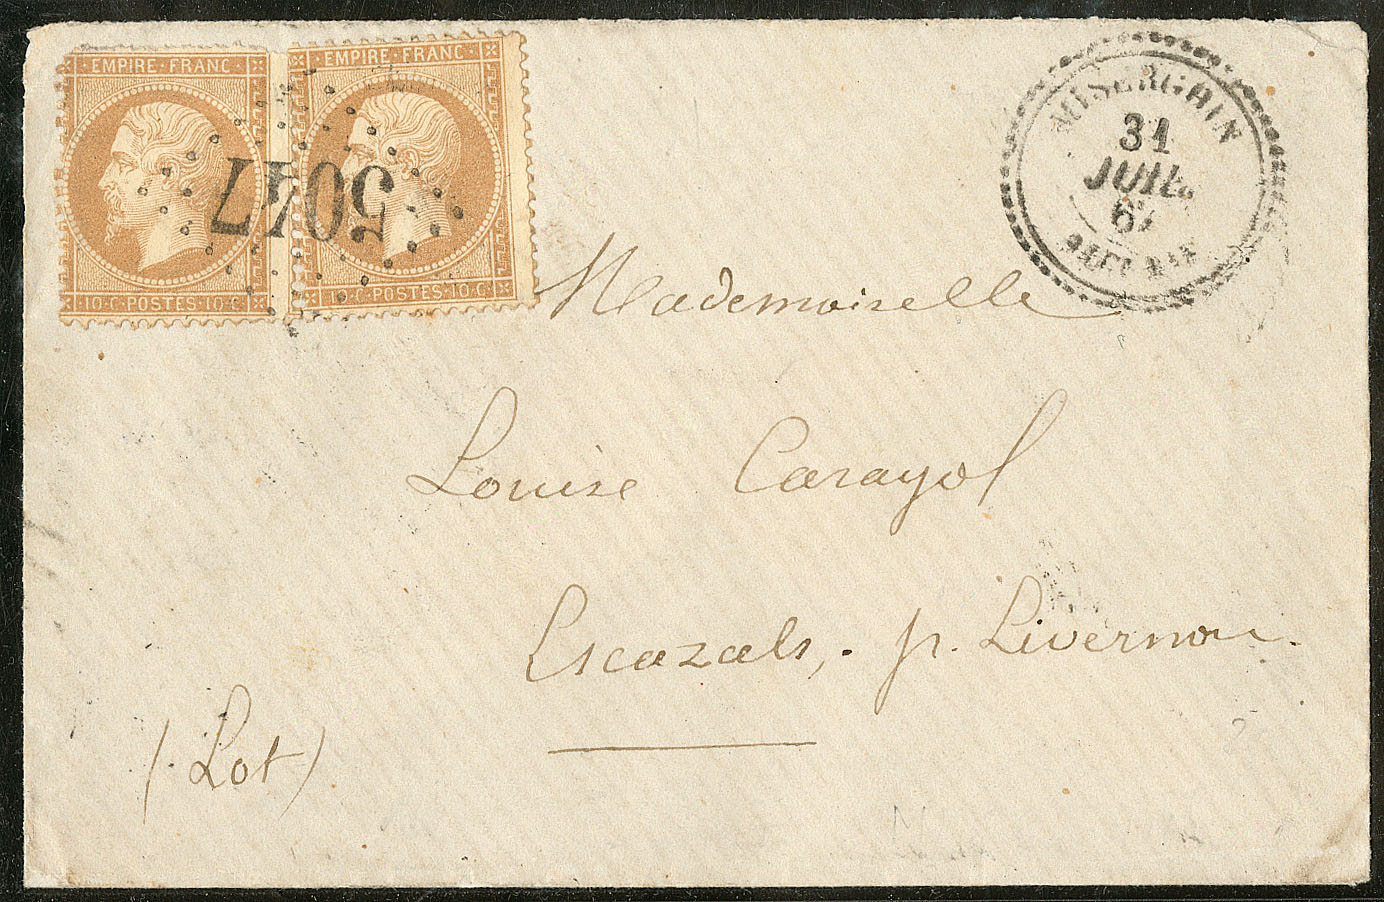 EMPIRE·FRANC
EMPIRE·FRANC
10·C·POSTES·10·C
10·C·POSTES·10·C
5047
MISERGHIN
31
JUIL.
Mademoiselle
Louise Carayol
Escazals, p. Livernon.
(Lot)